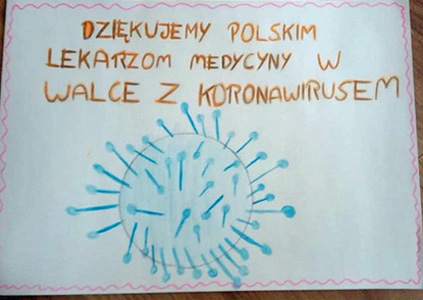 DZIĘKUJEMY POLSKIM
LEKARZOM MEDYCYNY W
WALCE Z KORONAWIRUSEM